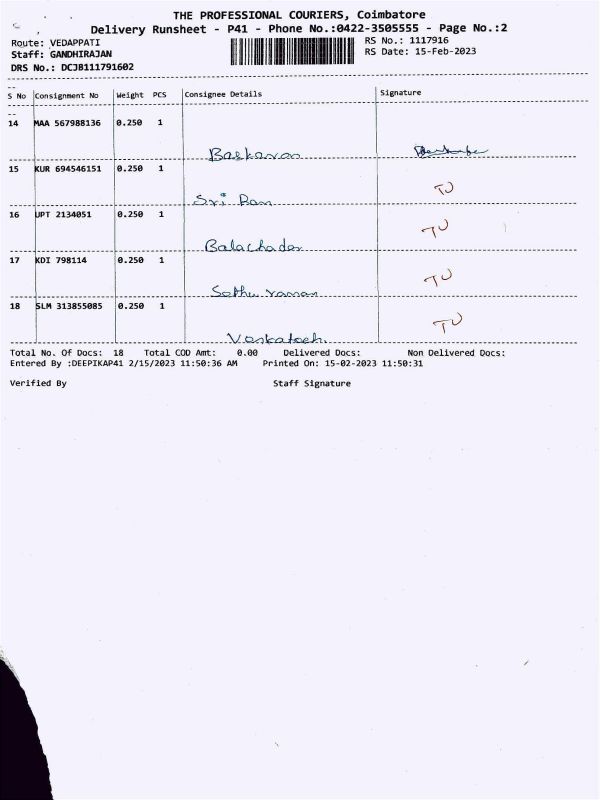 THE PROFESSIONAL COURIERS, Coimbatore
Delivery Runsheet - P41 - Phone No.:0422-3505555 - Page No.:2
Route: VEDAPPATI
RS No.: 1117916
Staff: GANDHIRAJAN
RS Date: 15-Feb-2023
DRS No.: DCJB111791602
S No Consignment No Weight PCS Consignee Details Signature
14 MAA 567988136 0.250 1
Baskaran
15 KUR 694546151 0.250 1
Sri Ram TU
16 UPT 2134051 0.250 1 TU
Balachader
17 KDI 798114 0.250 1 TU
Sethu raman
18 SLM 313855085 0.250 1 TU
Venkatesh.
Total No. Of Docs: 18 Total COD Amt: 0.00 Delivered Docs: Non Delivered Docs:
Entered By :DEEPIKAP41 2/15/2023 11:50:36 AM Printed On: 15-02-2023 11:50:31
Verified By Staff Signature